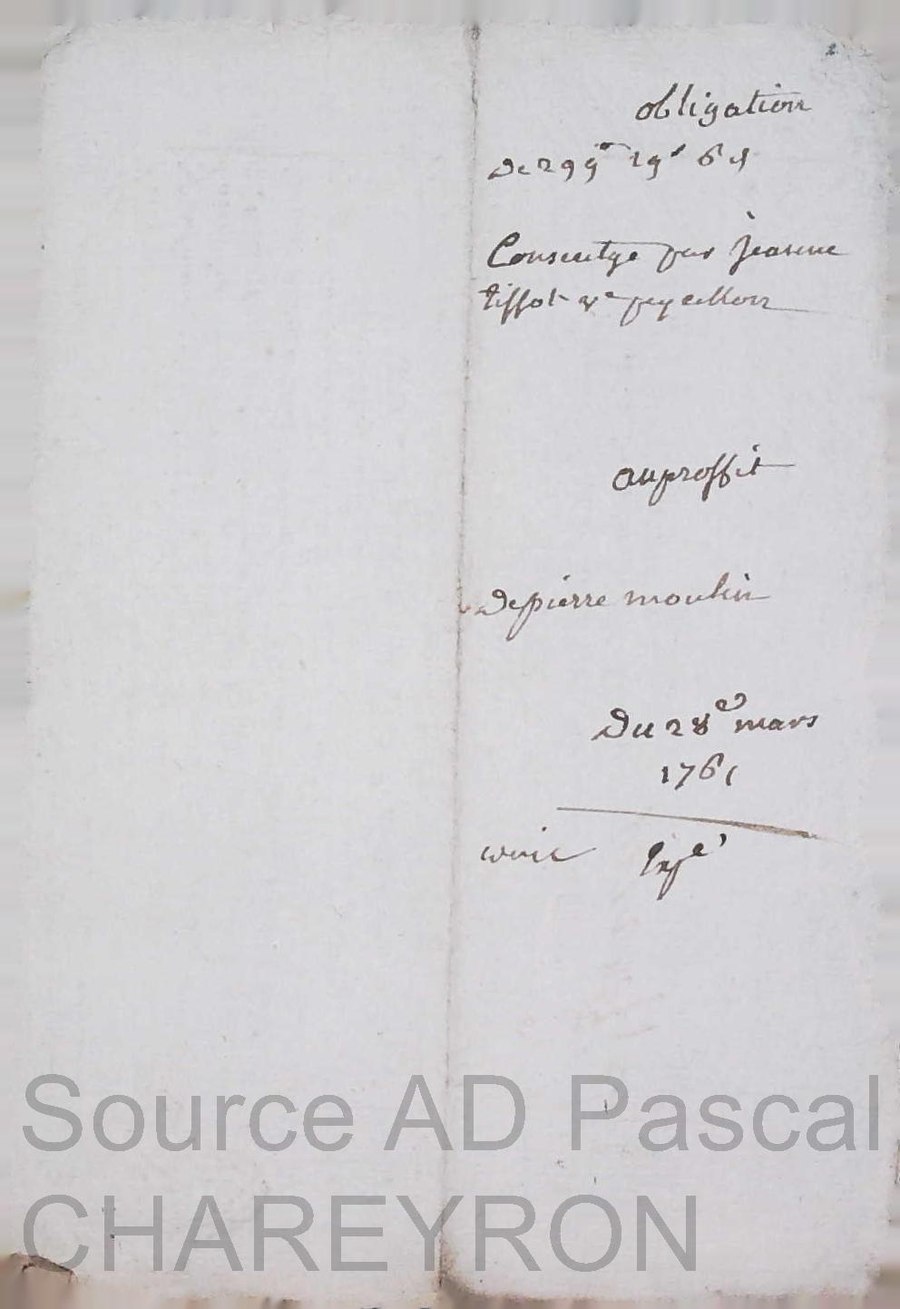 2
obligation
de 299# 19s 6d
Consentye par jeanne
tissot ve peycellon
au proffit
de pierre moulin
Du 28e mars
1761
Source AD Pascal
CHAREYRON